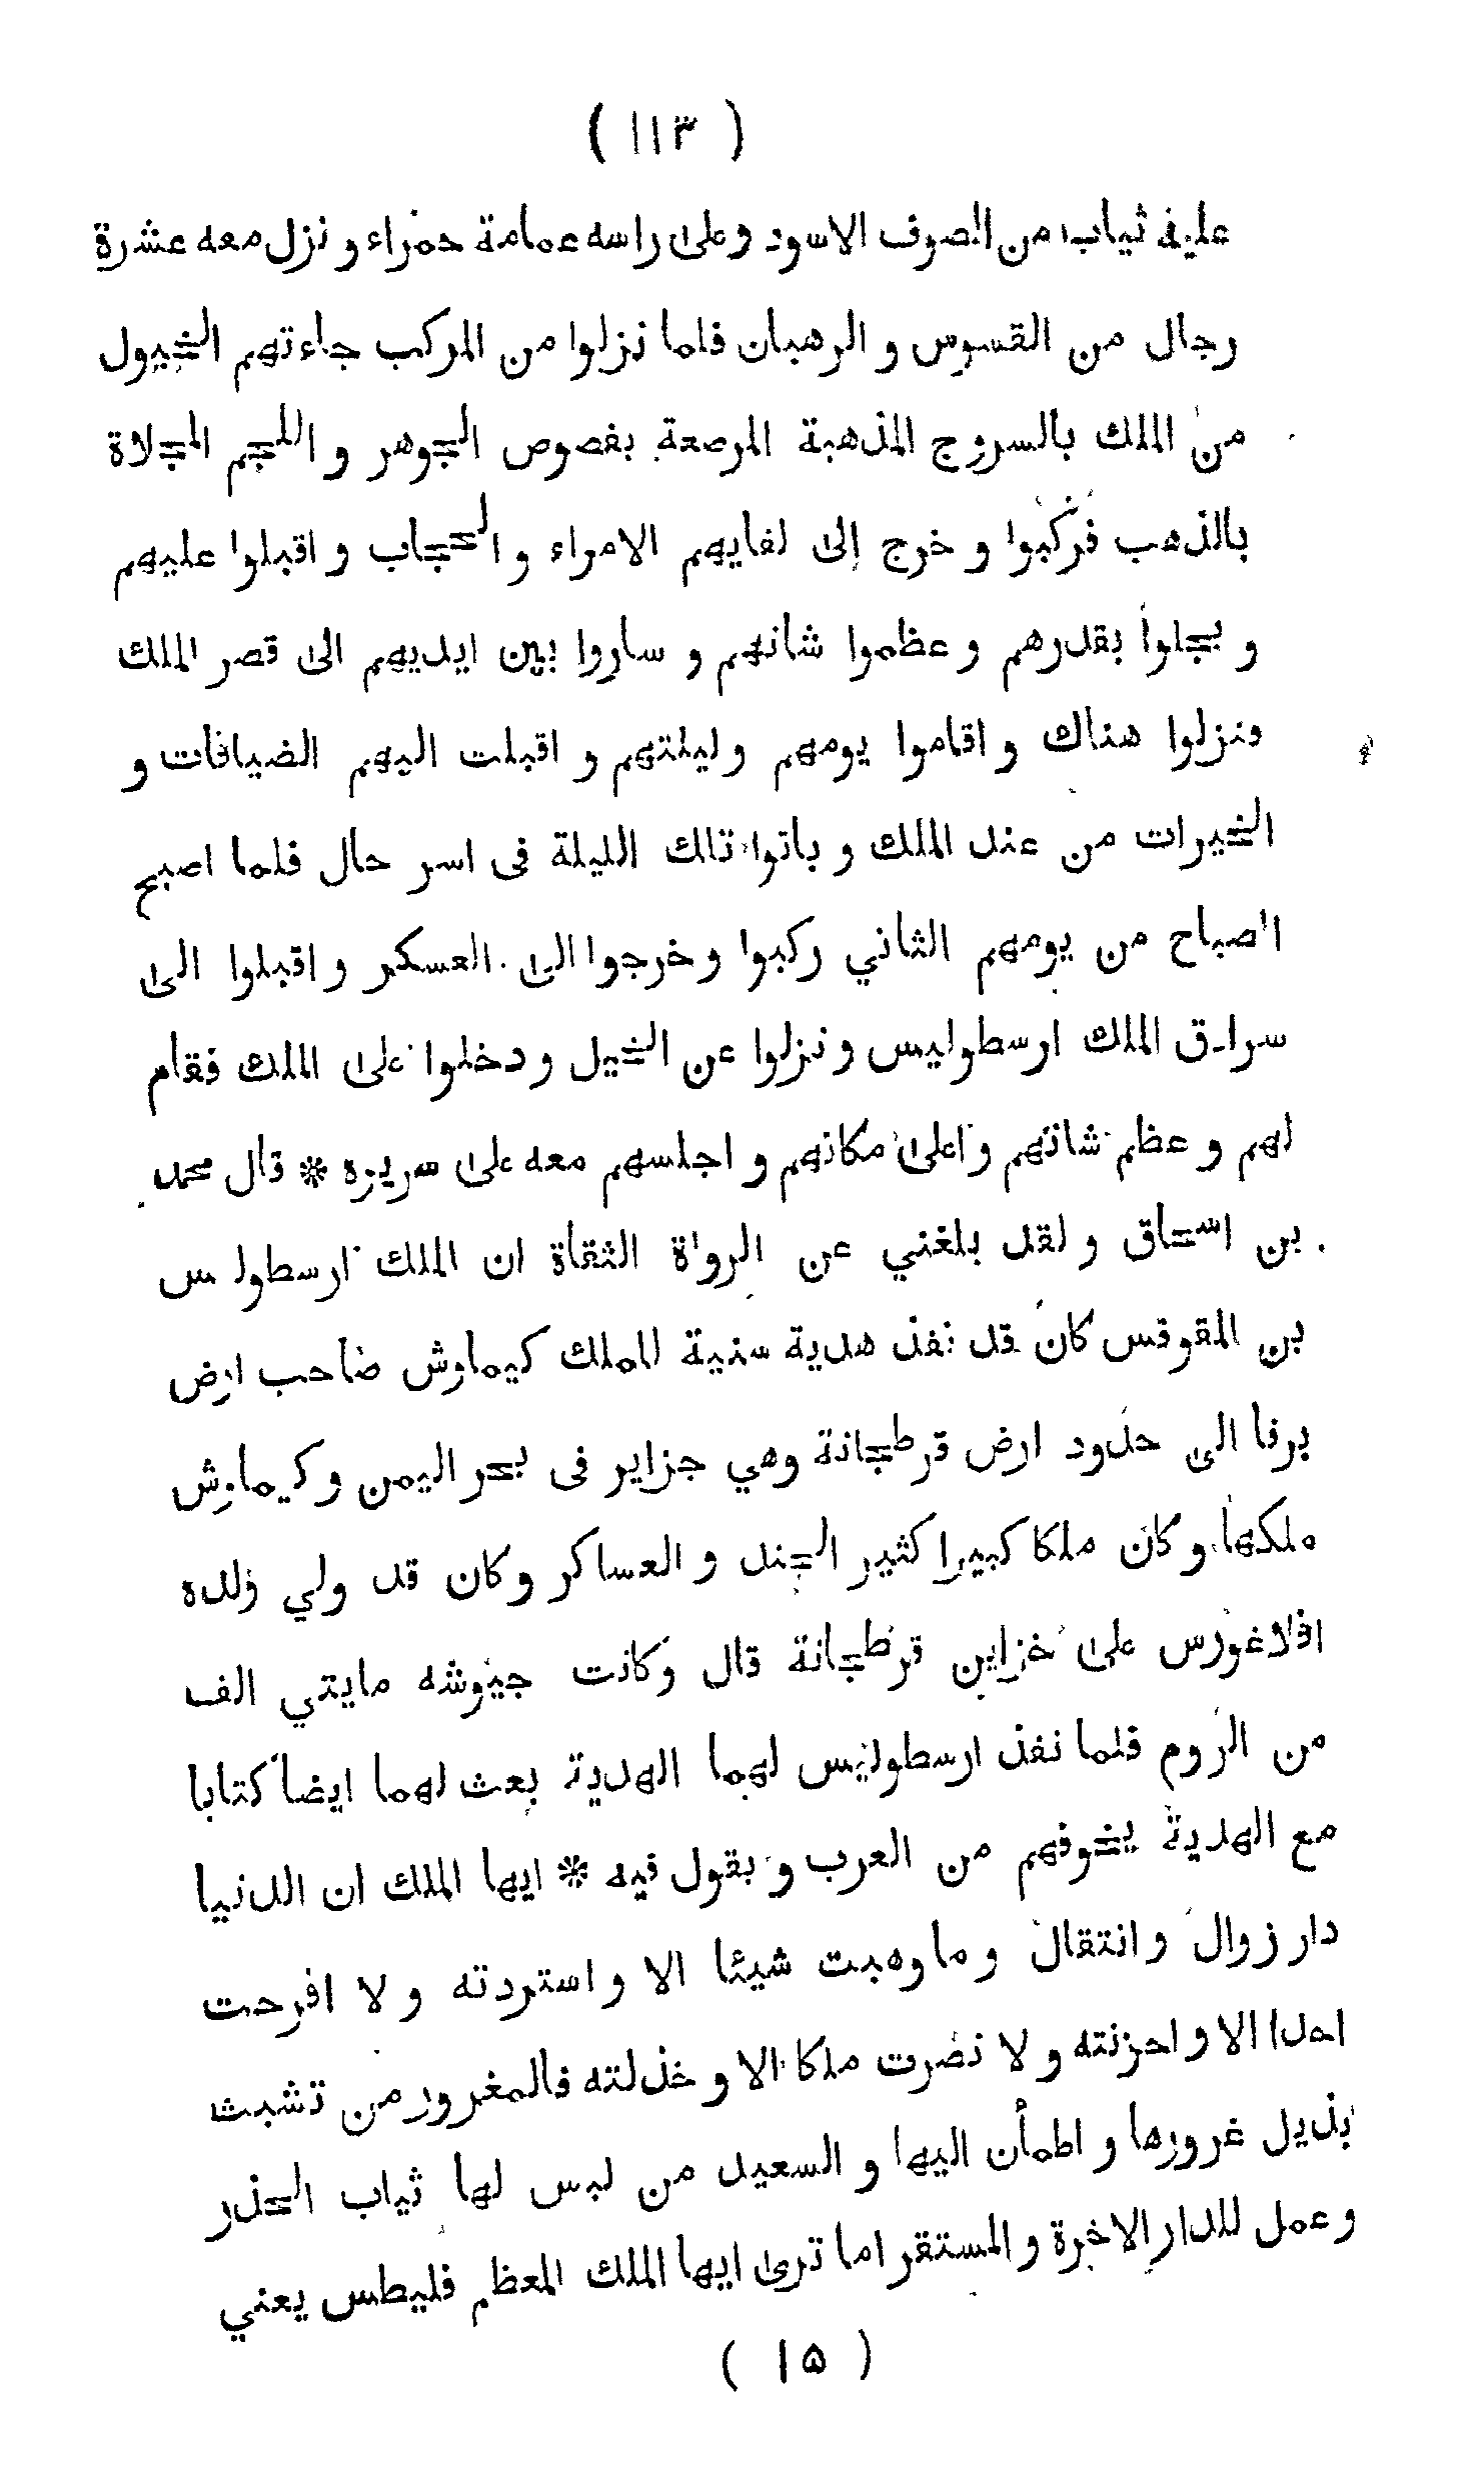 ( ١١٣ )
عليه ثياب من الصوف الاسود وعلى راسه عمامة حمراء و نزل معه عشرة
رجال من القسوس و الرهبان فلما نزلوا من المركب جاءتهم الخيول
من الملك بالسروج المذهبة المرصعة بفصوص الجوهر و اللجم المجلاة
بالذهب فركبوا و خرج إلى لقايهم الامراء و الحجاب و اقبلوا عليهم
و بجلوا بقدرهم و عظموا شانهم و ساروا بين ايديهم الى قصر الملك
ونزلوا هناك و اقاموا يومهم وليلتهم و اقبلت اليهم الضيافات و
الخيرات من عند الملك و باتوا تلك الليلة فى اسر حال فلما اصبح
الصباح من يومهم الثاني ركبوا وخرجوا الى العسكر و اقبلوا الى
سرادق الملك ارسطوليس و نزلوا عن الخيل و دخلوا على الملك فقام
لهم و عظم شانهم و اعلى مكانهم و اجلسهم معه على سريره * قال محمد
بن اسحاق و لقد بلغني عن الرواة الثقاة ان الملك ارسطوليس
بن المقوقس كان قد نفذ هدية سنية للملك كيماوش صاحب ارض
برقا الى حدود ارض قرطجانة وهي جزاير فى بحر اليمن و كيماوش
ملكها و كان ملكا كبيرا كثير الجند و العساكر و كان قد ولي ولده
افلاغورس على خزاين قرطجانة قال وكانت جيوشه مايتي الف
من الروم فلما نفذ ارسطوليس لهما الهدية بعث لهما ايضا كتابا
مع الهدية يخوفهم من العرب و يقول فيه * ايها الملك ان الدنيا
دار زوال و انتقال و ما وهبت شيئا الا و استردته و لا افرحت
احدا الا و احزنته و لا نصرت ملكا الا و خذلته فالمغرور من تشبث
بذيل غرورها و اطمأن اليها و السعيد من لبس لها ثياب الحذر
و عمل للدار الاخرة و المستقر اما ترى ايها الملك المعظم فليطس يعني
( ١۵ )